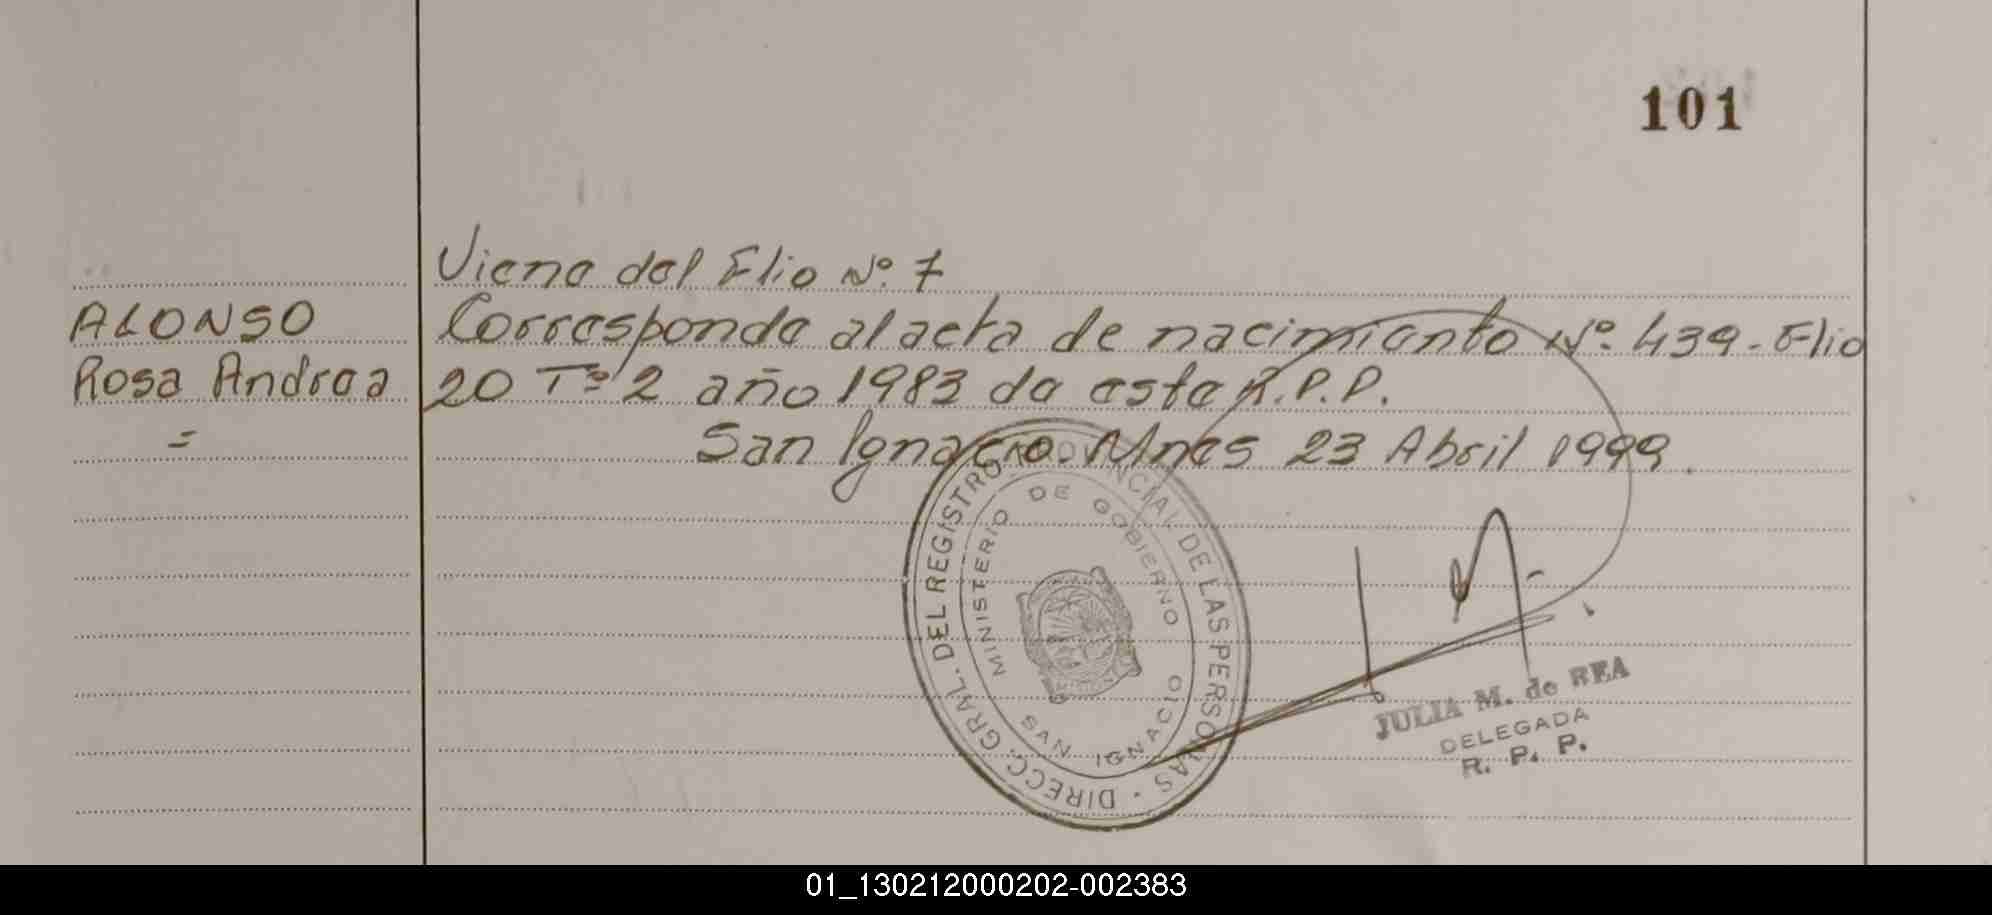 101
Viene del Flio Nº. 7
ALONSO
Rosa Andrea
=
Corresponde al acta de nacimiento Nº. 439 - Flio
20 Tº 2 año 1983 de esta R.P.P.
San Ignacio. Mnes 23 Abril 1999.
DIRECC. GRAL. DEL REGISTRO PROVINCIAL DE LAS PERSONAS
MINISTERIO DE GOBIERNO
SAN IGNACIO
JULIA M. de REA
DELEGADA
R. P. P.
01_130212000202-002383